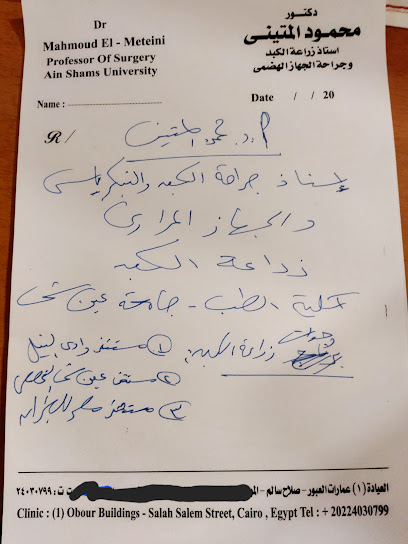 Dr
Mahmoud El - Meteini
Professor Of Surgery
Ain Shams University
دكتور
محمود المتينى
استاذ زراعة الكبد
وجراحة الجهاز الهضمى
Name :
Date / / 20
R/
أ.د. محمود المتينى
إستاذ جراحة الكبد والبنكرياس
والجهاز المرارى
زراعة الكبد
كلية الطب - جامعة عين شمس
وحدات زراعة الكبد:
① مستشفى وادى النيل
② مستشفى عين شمس التخصصى
③ مستشفى مصر للطيران
العيادة (١) عمارات العبور - صلاح سالم - ت : ٢٤٠٣٠٧٩٩
Clinic : (1) Obour Buildings - Salah Salem Street, Cairo , Egypt Tel : + 20224030799